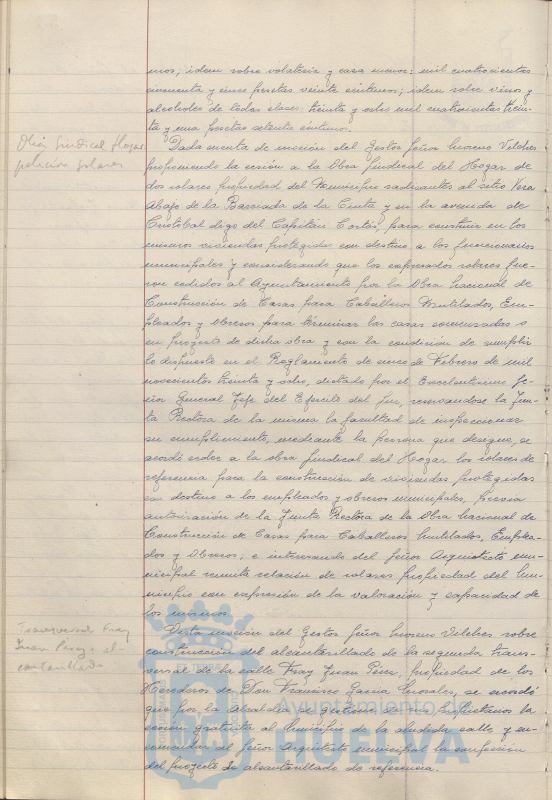 mos; idem sobre volateria y caza menor: mil cuatrocientas
cincuenta y cinco pesetas veinte centimos; idem sobre vinos y
alcoholes de todas clases: treinta y ocho mil cuatrocientas trein-
ta y una pesetas setenta centimos.
Obra Sindical Hogar
petición solares
Dada cuenta de moción del Gestor Señor Moreno Vilches
proponiendo la cesión a la Obra Sindical del Hogar de
dos solares propiedad del Municipio radicantes al sitio Vera
Abajo de la Barriada de la Cinta y en la avenida de
Cristobal digo del Capitán Cortés, para construir en los
mismos viviendas protegidas con destino a los funcionarios
municipales y considerando que los expresados solares fue-
ron cedidos al Ayuntamiento por la Obra Nacional de
Construcción de Casas para Caballeros Mutilados, Em-
pleados y Obreros para terminar las casas comenzadas o
en proyecto de dicha obra y con la condición de cumplir
lo dispuesto en el Reglamento de cinco de Febrero de mil
novecientos treinta y ocho, dictado por el Excelentisimo Se-
ñor General Jefe del Ejercito del Sur, reservandose la Jun-
ta Rectora de la misma la facultad de inspeccionar
su cumplimiento, mediante la persona que designe, se
acordó ceder a la obra Sindical del Hogar los solares de
referencia para la construcción de viviendas protegidas
con destino a los empleados y obreros municipales, previa
autorización de la Junta Rectora de la Obra Nacional de
Construcción de Casas para Caballeros Mutilados, Emplea-
dos y Obreros; e interesando del señor Arquitecto mu-
nicipal remita relación de solares propiedad del Mu-
nicipio con expresión de la valoración y capacidad de
los mismos.
Transversal Fray
Juan Perez al-
cantarillado
Vista moción del Gestor Señor Moreno Vilches sobre
construcción del alcantarillado de la segunda trans-
versal de la calle Fray Juan Pérez, propiedad de los
Herederos de Don Francisco Garcia Morales, se acordó
que por la Alcaldia se gestione de sus propietarios la
cesión gratuita al Municipio de la aludida calle y en-
comendar al Señor Arquitecto municipal la confección
del proyecto de alcantarillado de referencia.
Ayuntamiento de
HUELVA